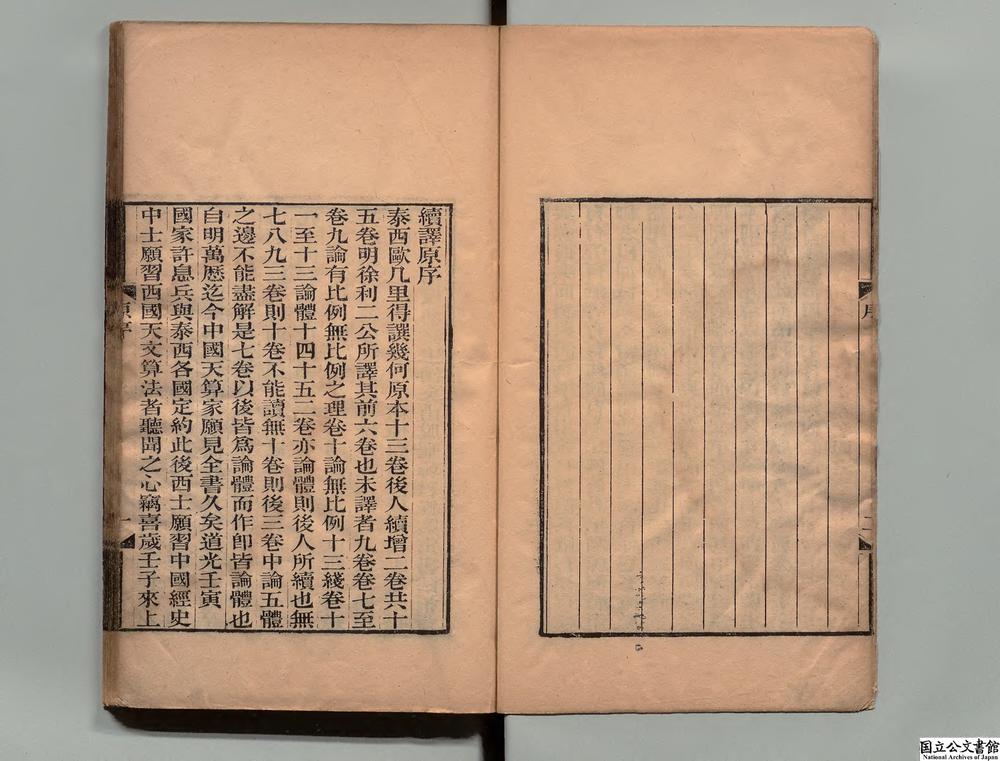 續譯原序
泰西歐几里得譔幾何原本十三卷後人續增二卷共十
五卷明徐利二公所譯其前六卷也未譯者九卷卷七至
卷九論有比例無比例之理卷十論無比例十三綫卷十
一至十三論體十四十五二卷亦論體則後人所續也無
七八九三卷則十卷不能讀無十卷則後三卷中論五體
之邊不能盡解是七卷以後皆爲論體而作卽皆論體也
自明萬歷迄今中國天算家願見全書久矣道光壬寅
國家許息兵與泰西各國定約此後西士願習中國經史
中士願習西國天文算法者聽聞之心竊喜歲壬子來上
原序
一
序
二
国立公文書館
National Archives of Japan